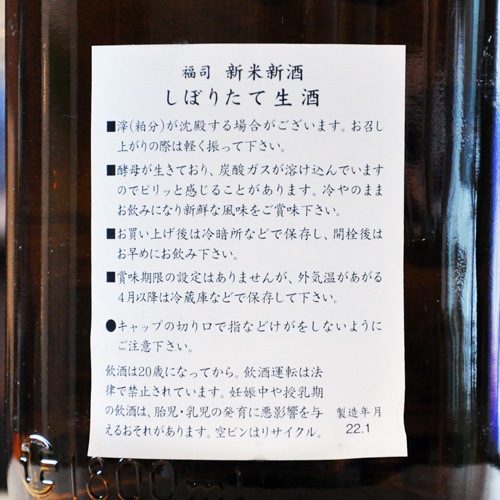 福司 新米新酒
しぼりたて生酒
■滓(粕分)が沈殿する場合がございます。お召し
上がりの際は軽く振って下さい。
■酵母が生きており、炭酸ガスが溶け込んでいます
のでピリッと感じることがあります。冷やのまま
お飲みになり新鮮な風味をご賞味下さい。
■お買い上げ後は冷暗所などで保存し、開栓後は
お早めにお飲み下さい。
■賞味期限の設定はありませんが、外気温があがる
4月以降は冷蔵庫などで保存して下さい。
●キャップの切り口で指などけがをしないように
ご注意下さい。
飲酒は20歳になってから。飲酒運転は法
律で禁止されています。妊娠中や授乳期
の飲酒は、胎児・乳児の発育に悪影響を与
えるおそれがあります。空ビンはリサイクル。
製造年月
22.1
1800ml